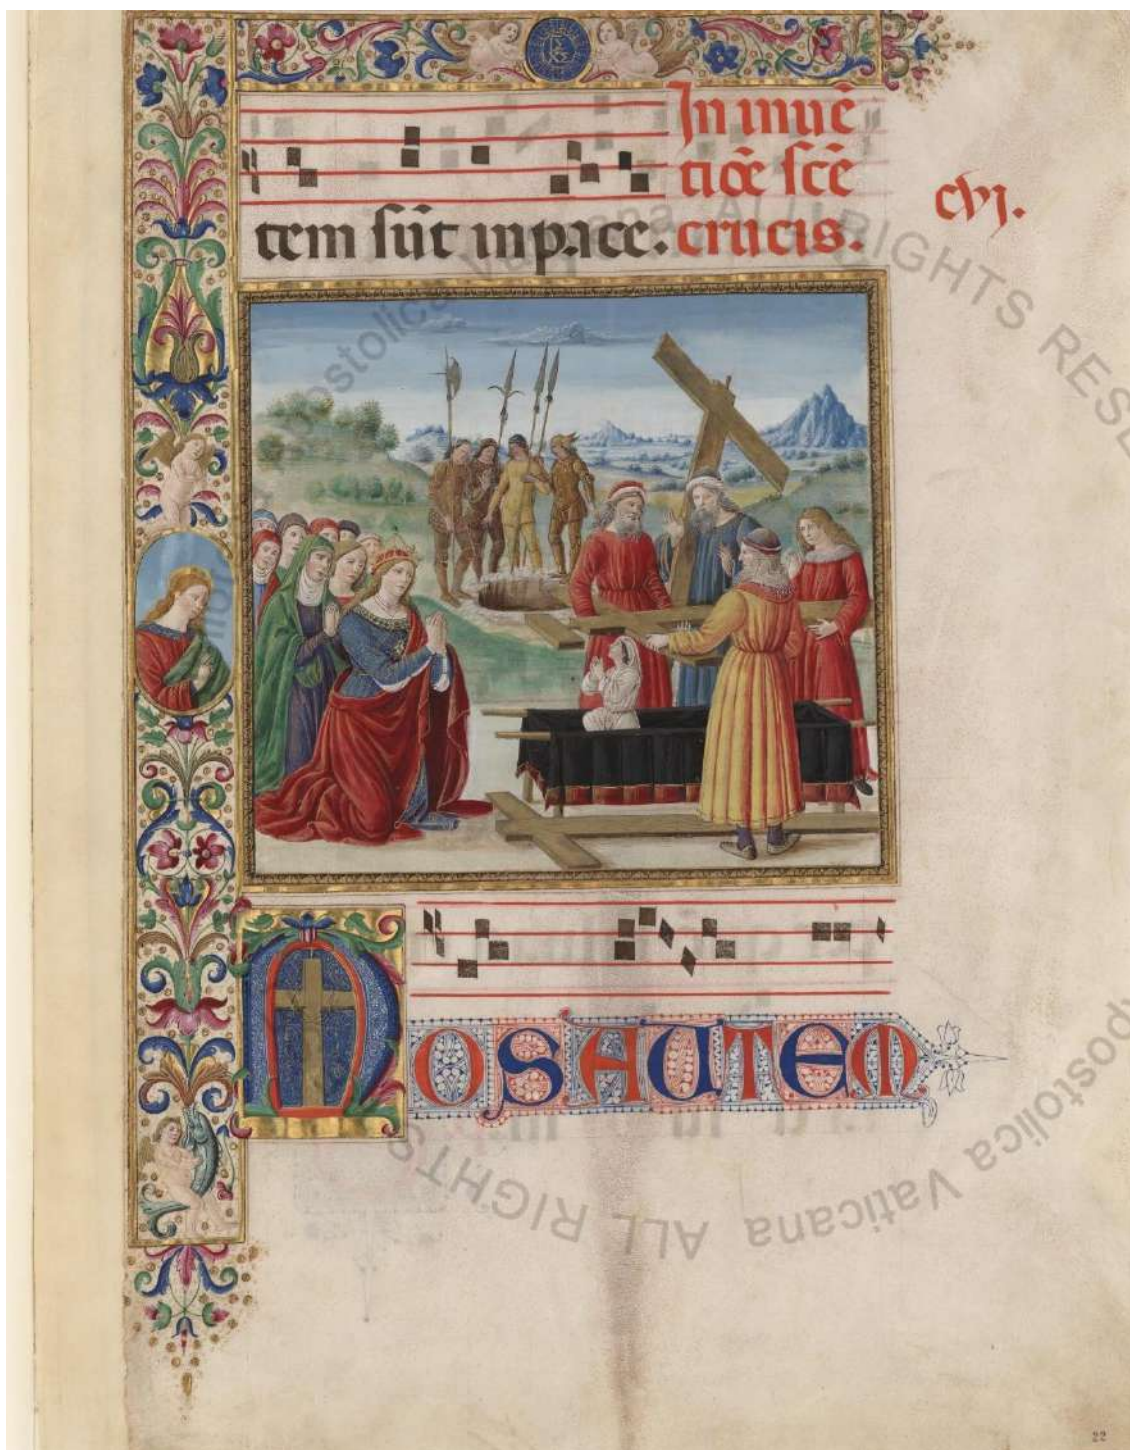 In inuē
tiōe scē
tem sūt in pace. crucis.
cvj.
NOS AUTEM
22
Apostolica Vaticana ALL RIGHTS RESE
Apostolica Vaticana ALL RIGHTS